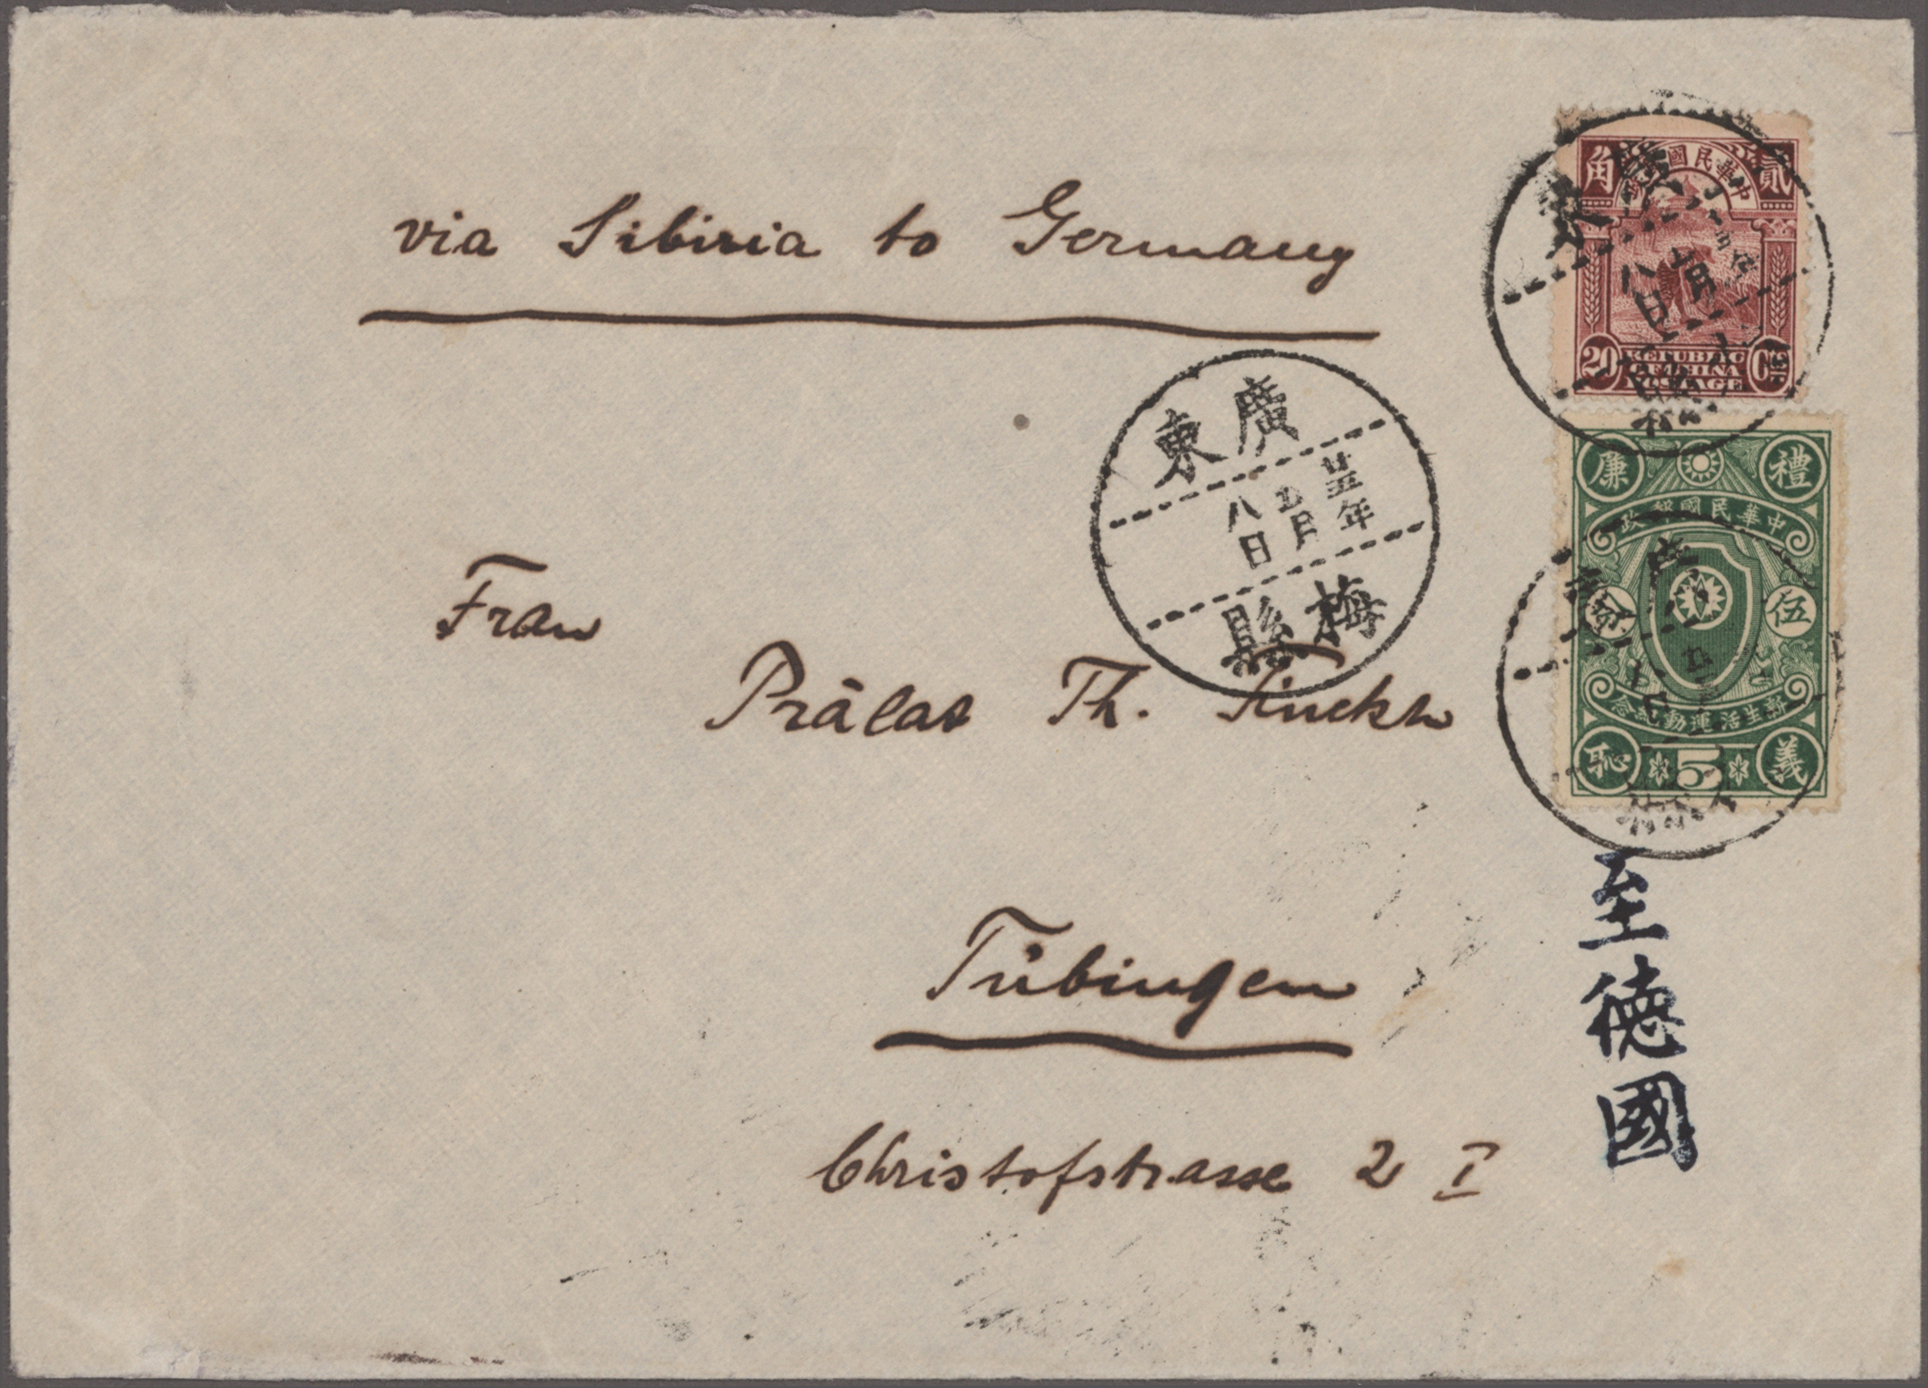 via Sibiria to Germany
Frau
Prälat Th.
Tübingen
Christofstrasse 2 I
廣東
廿五年
月
八日
梅縣
貳角
中華民國郵政
20
REPUBLIC
OF CHINA
POSTAGE
禮廉
中華民國郵政
伍分
新生活運動紀念
義恥
5
至德國